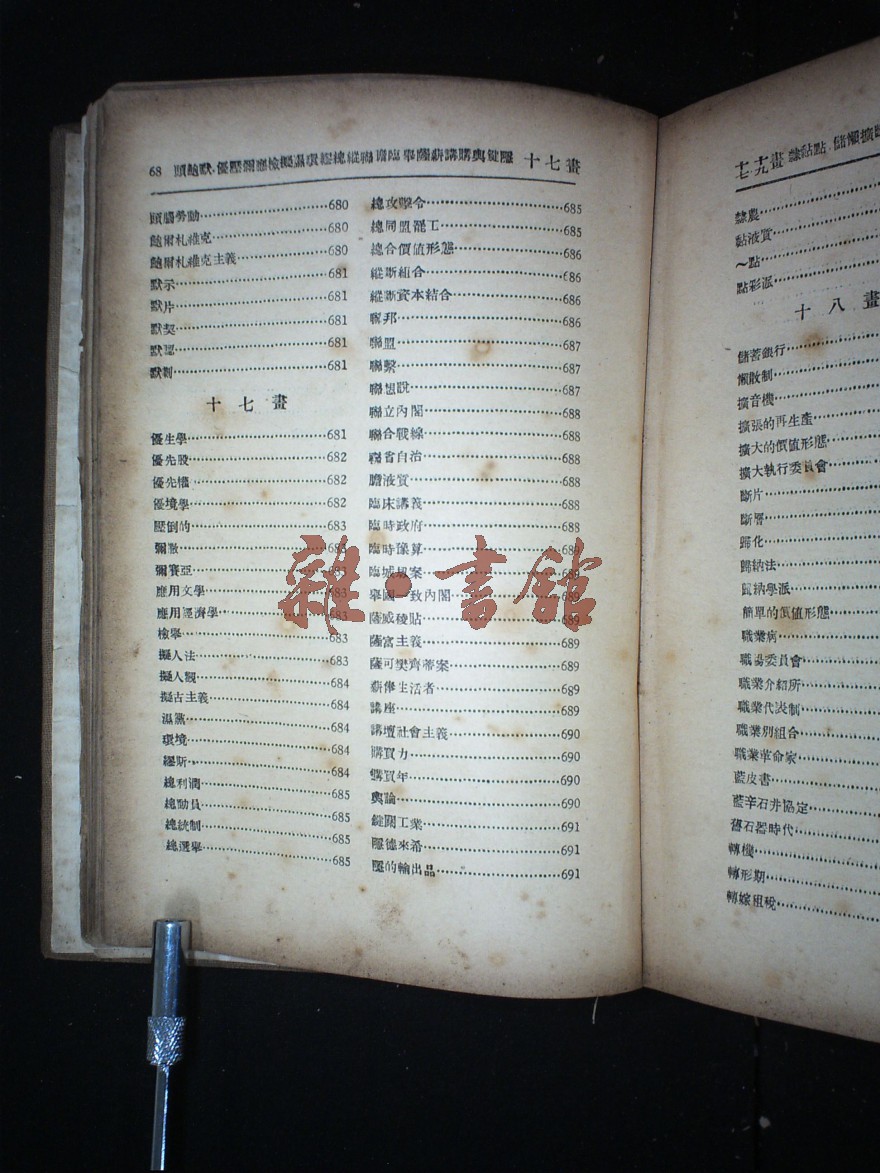 68 十七畫
頭腦勞動 680
鮑爾札維克 680
鮑爾札維克主義 680
默示 681
默片 681
默契 681
默認 681
默劇 681
十七畫
優生學 681
優先股 682
優先權 682
優境學 682
壓倒的 683
彌撒 683
彌賽亞 683
應用文學 683
應用經濟學 683
檢舉 683
擬人法 683
擬人觀 684
擬古主義 684
濕黨 684
環境 684
繆斯 684
總利潤 685
總動員 685
總統制 685
總選舉 685
總攻擊令 685
總同盟罷工 685
總合價值形態 686
縱斷組合 686
縱斷資本結合 686
聯邦 686
聯盟 687
聯繫 687
聯想說 687
聯立內閣 688
聯合戰線 688
聯省自治 688
膽液質 688
臨床講義 688
臨時政府 688
臨時豫算 689
臨城劫案 689
舉國一致內閣 689
薩威稜貼 689
薩富主義 689
薩可樊齊蒂案 689
薪俸生活者 689
講座 689
講壇社會主義 690
購買力 690
購買年 690
輿論 690
鍵關工業 691
隱德來希 691
隱的輸出品 691
雜·書館
隸農
黏液質
～點
點彩派
十八畫
儲蓄銀行
懶散制
擴音機
擴張的再生產
擴大的價值形態
擴大執行委員會
斷片
斷層
歸化
歸納法
歸納學派
簡單的價值形態
職業病
職場委員會
職業介紹所
職業代議制
職業別組合
職業革命家
藍皮書
藍辛石井協定
舊石器時代
轉機
轉形期
轉嫁租稅